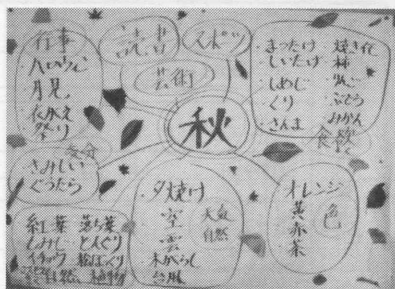 行事
ハロウィン
月見
衣がえ
祭り
読書
スポーツ
芸術
秋
まったけ
しいたけ
しめじ
くり
さんま
焼き芋
柿
りんご
ぶどう
みかん
食欲
気分
さみしい
ぐうたら
紅葉 落ち葉
もみじ どんぐり
イチョウ 松ぼっくり
自然 植物
夕焼け
空
雲
木がらし
台風
天気
自然
オレンジ
黄
赤
茶
色